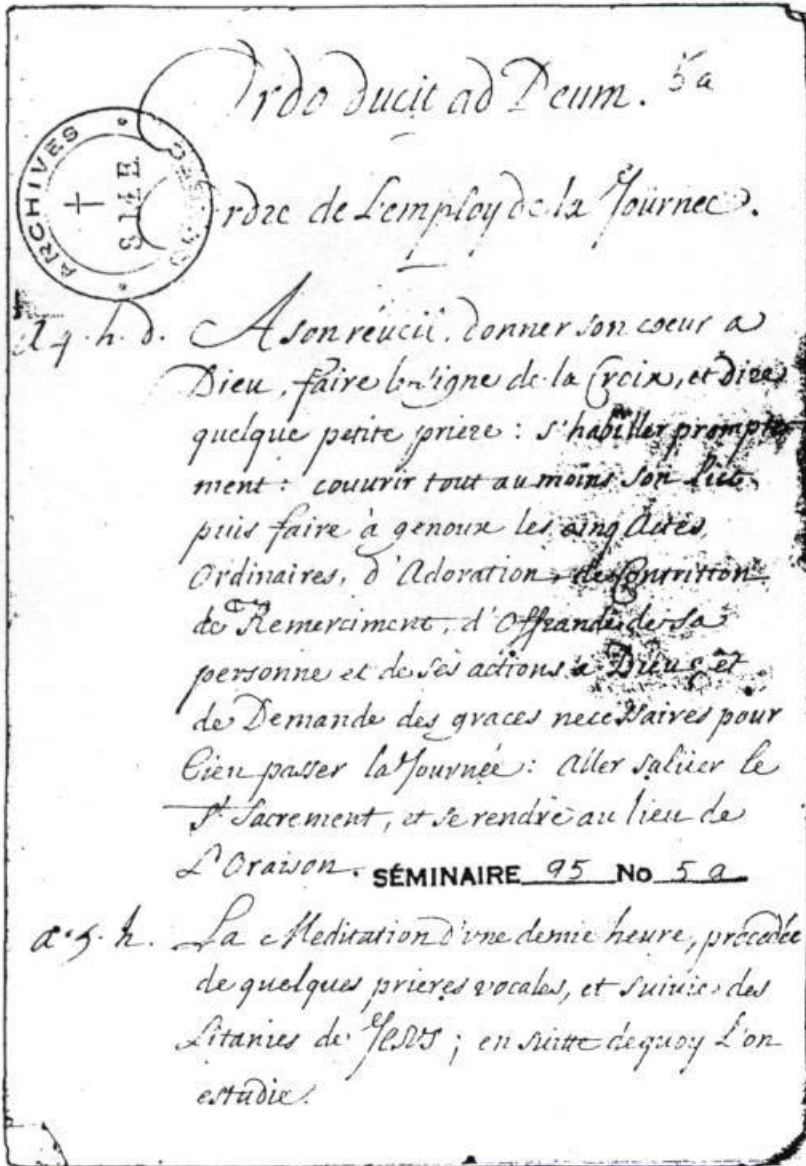 Ordo ducit ad Deum. 5a
ARCHIVES
S M E
Ordre de L'employ de la Journeé.
A 4. h. d. A son réueil, donner son coeur a
Dieu, faire le signe de la Croix, et dire
quelque petite priere : s'habiller prompte
ment : couurir tout au moins son lict,
puis faire à genoux les cinq Actes
Ordinaires, d'Adoration, de Contrition
de Remerciment, d'Offrande de sa
personne et de ses actions a Dieu, et
de Demande des graces necessaires pour
bien passer la Journée : Aller salüer le
St Sacrement, et se rendre au lieu de
L'Oraison. SÉMINAIRE 95 No 5a
a 5. h. La Meditation d'vne demie heure, precedée
de quelques prieres vocales, et suiuie des
Litanies de Jesus ; en suitte dequoy L'on
estudie.